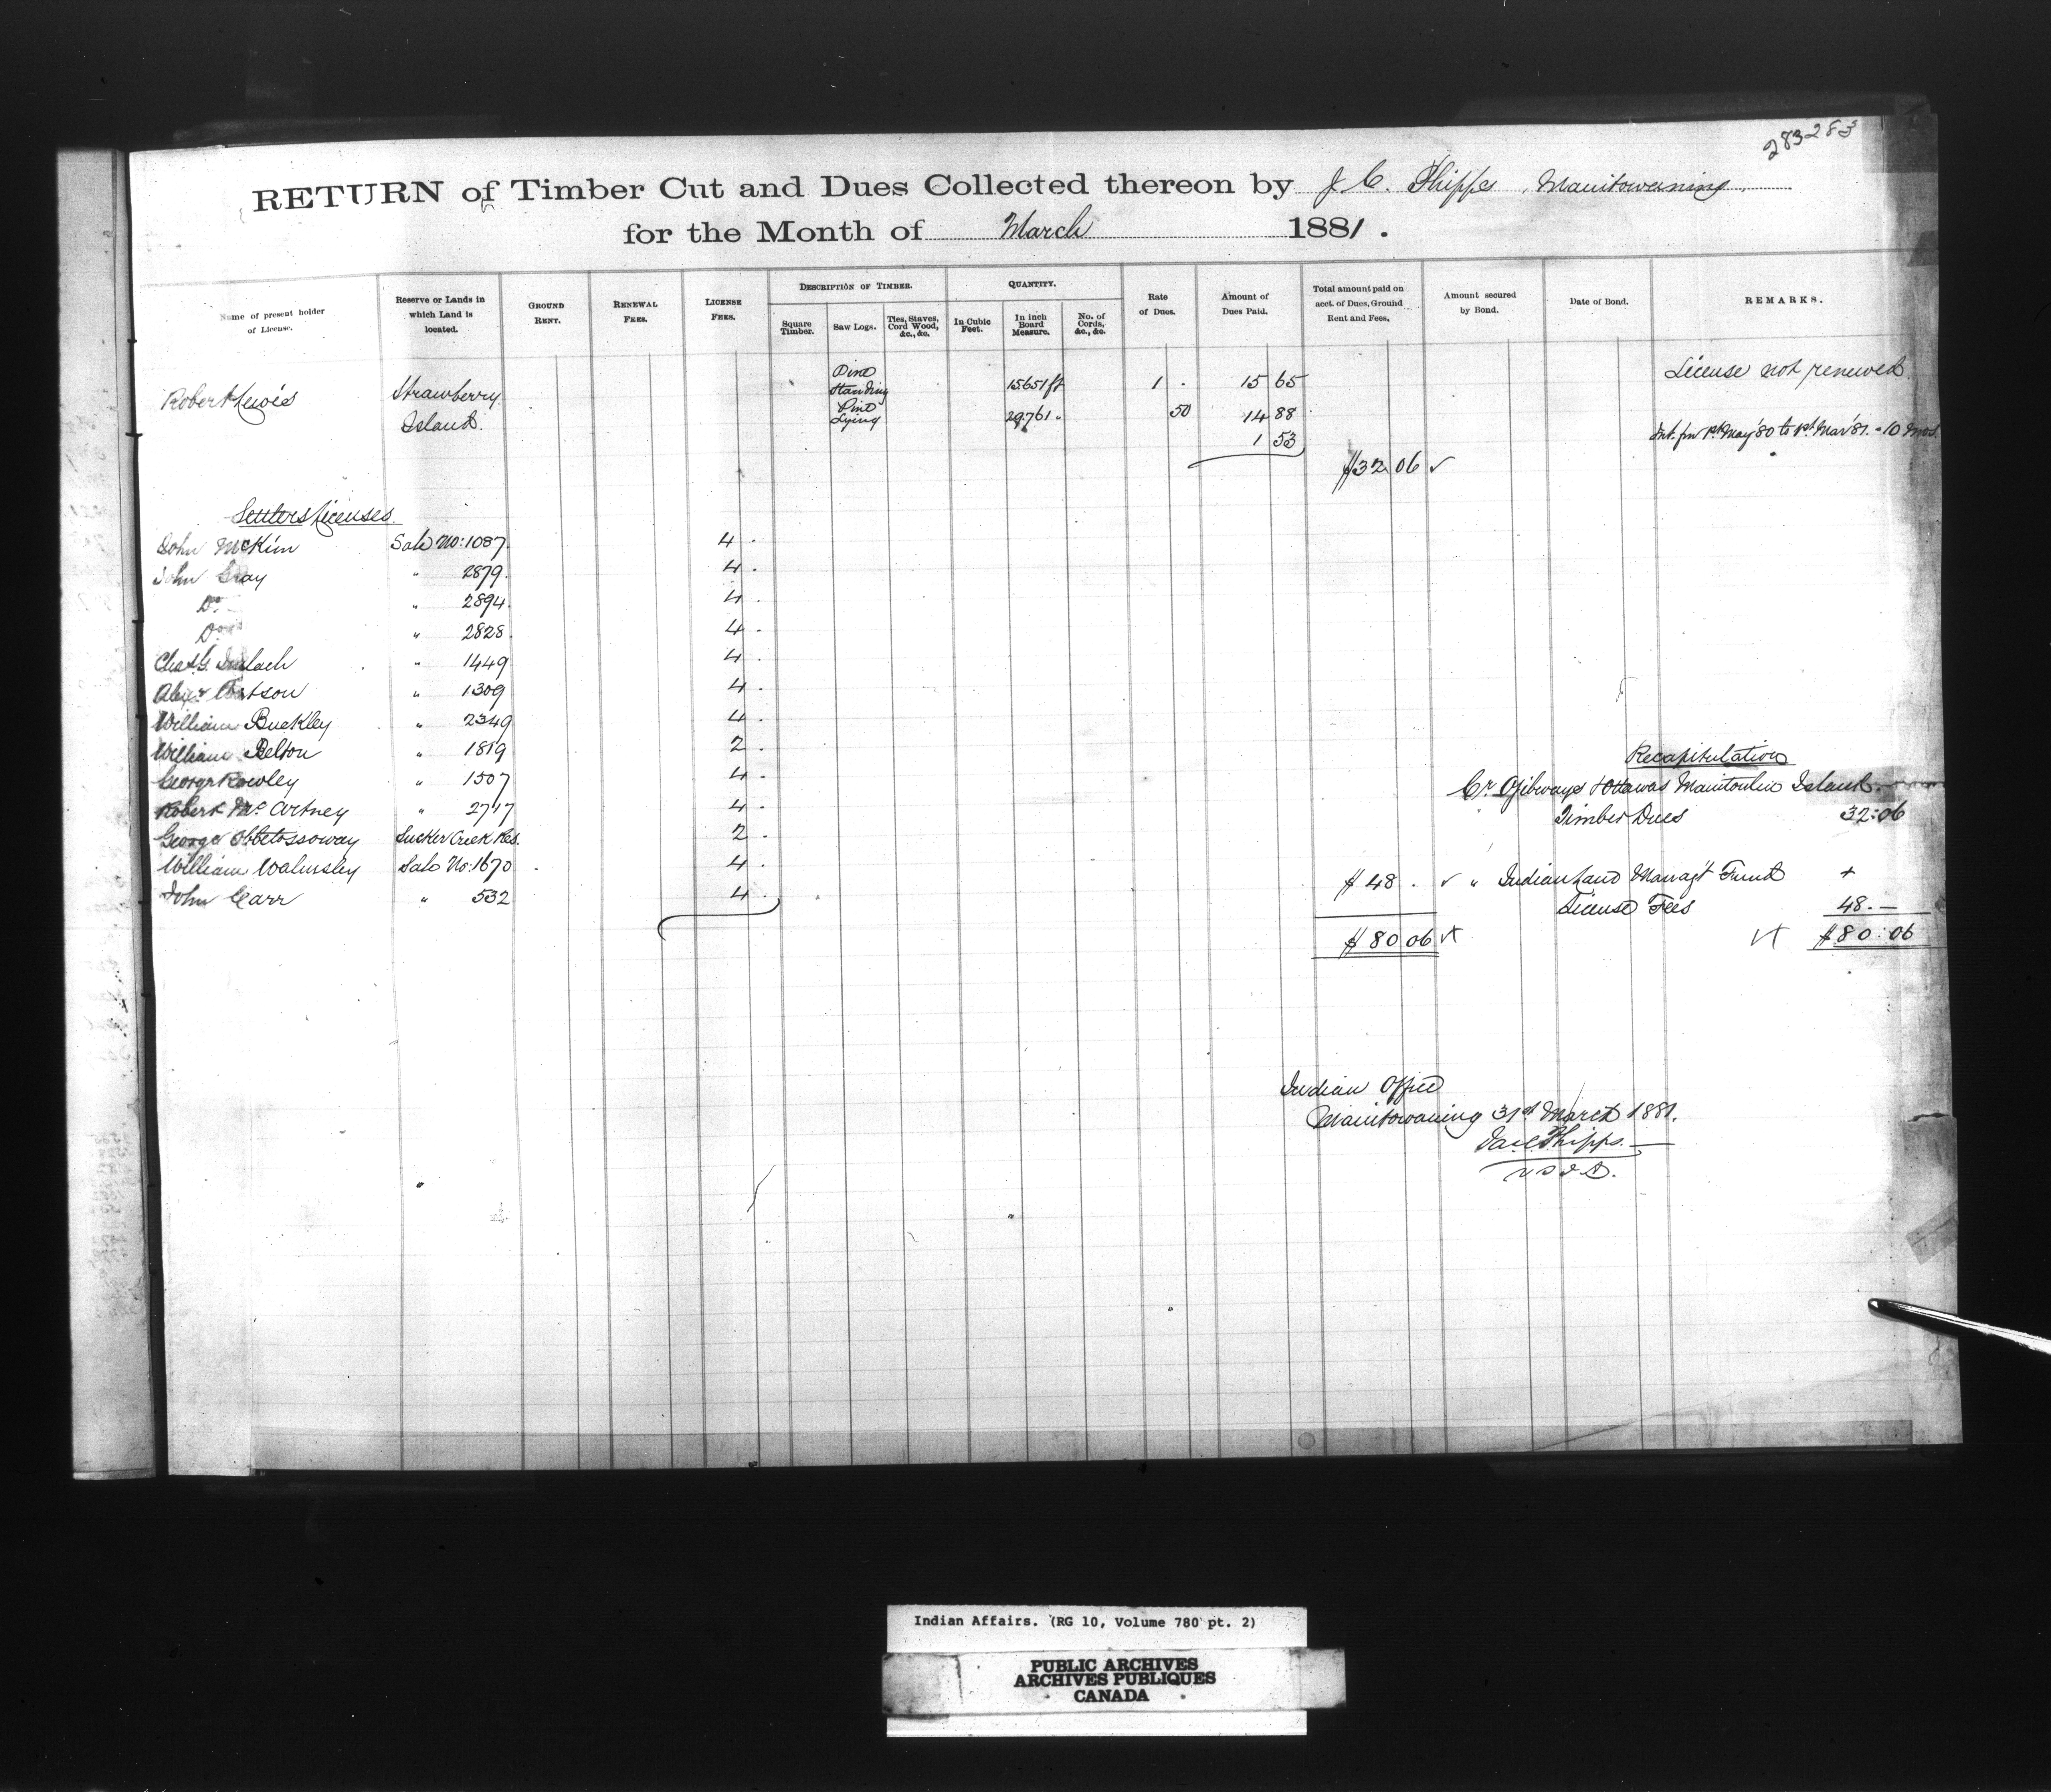 283283
RETURN of Timber Cut and Dues Collected thereon by J. C. Phipps, Manitowaning.
for the Month of March 1881.
Name of present holder of License.
Reserve or Lands in which Land is located.
GROUND RENT.
RENEWAL FEES.
LICENSE FEES.
DESCRIPTION OF TIMBER.
Square Timber.
Saw Logs.
Ties, Staves, Cord Wood, &c., &c.
QUANTITY.
In Cubic Feet.
In inch Board Measure.
No. of Cords, &c., &c.
Rate of Dues.
Amount of Dues Paid.
Total amount paid on acct. of Dues, Ground Rent and Fees.
Amount secured by Bond.
Date of Bond.
REMARKS.
Robert Lewis Strawberry Island. Pine Standing 15651 ft 1 . 15 65 License not renewed.
Pine Lying 29761 " 50 14 88
1 53 Int. fm 1st May '80 to 1st Mar '81. - 10 mos.
$32 06 ✓
Settlers Licenses.
John McKim Sale No: 1087. 4 .
John Gray " 2879. 4 .
Do " 2894. 4 .
Do " 2828. 4 .
Chas. G. " 1449 4 .
" 1309 4 .
William Buckley " 2349 4 .
William Belton " 1819 2 .
George Rowley " 1507 4 .
Robert McCartney " 2717 4 .
George Obbetossoway Sucker Creek Res. 2 .
William Walmsley Sale No: 1670 4 .
John Carr " 532 4 .
$48 . ✓
$80 06
Recapitulation
Cr. Ojibways & Ottawas Manitoulin Island.
Timber Dues 32:06
" Indian Land Manag't Fund +
License Fees 48.—
$80:06
Indian Office
Manitowaning 31st March 1881.
Jas. C. Phipps.
V S I A.
Indian Affairs. (RG 10, Volume 780 pt. 2)
PUBLIC ARCHIVES
ARCHIVES PUBLIQUES
CANADA